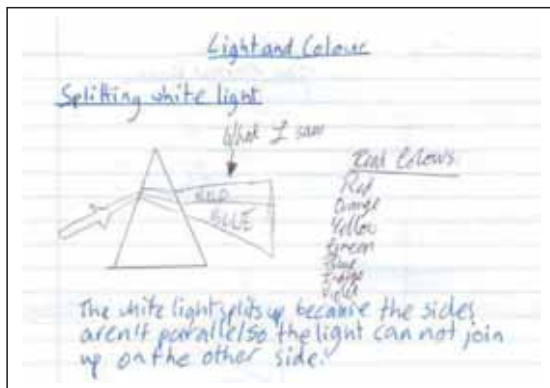 Light and Colour
Splitting white light
What I saw
RED
BLUE
Real Colours
Red
Orange
Yellow
Green
Blue
Indigo
Violet
The white light splits up because the sides
aren't parallel so the light can not join
up on the other side.